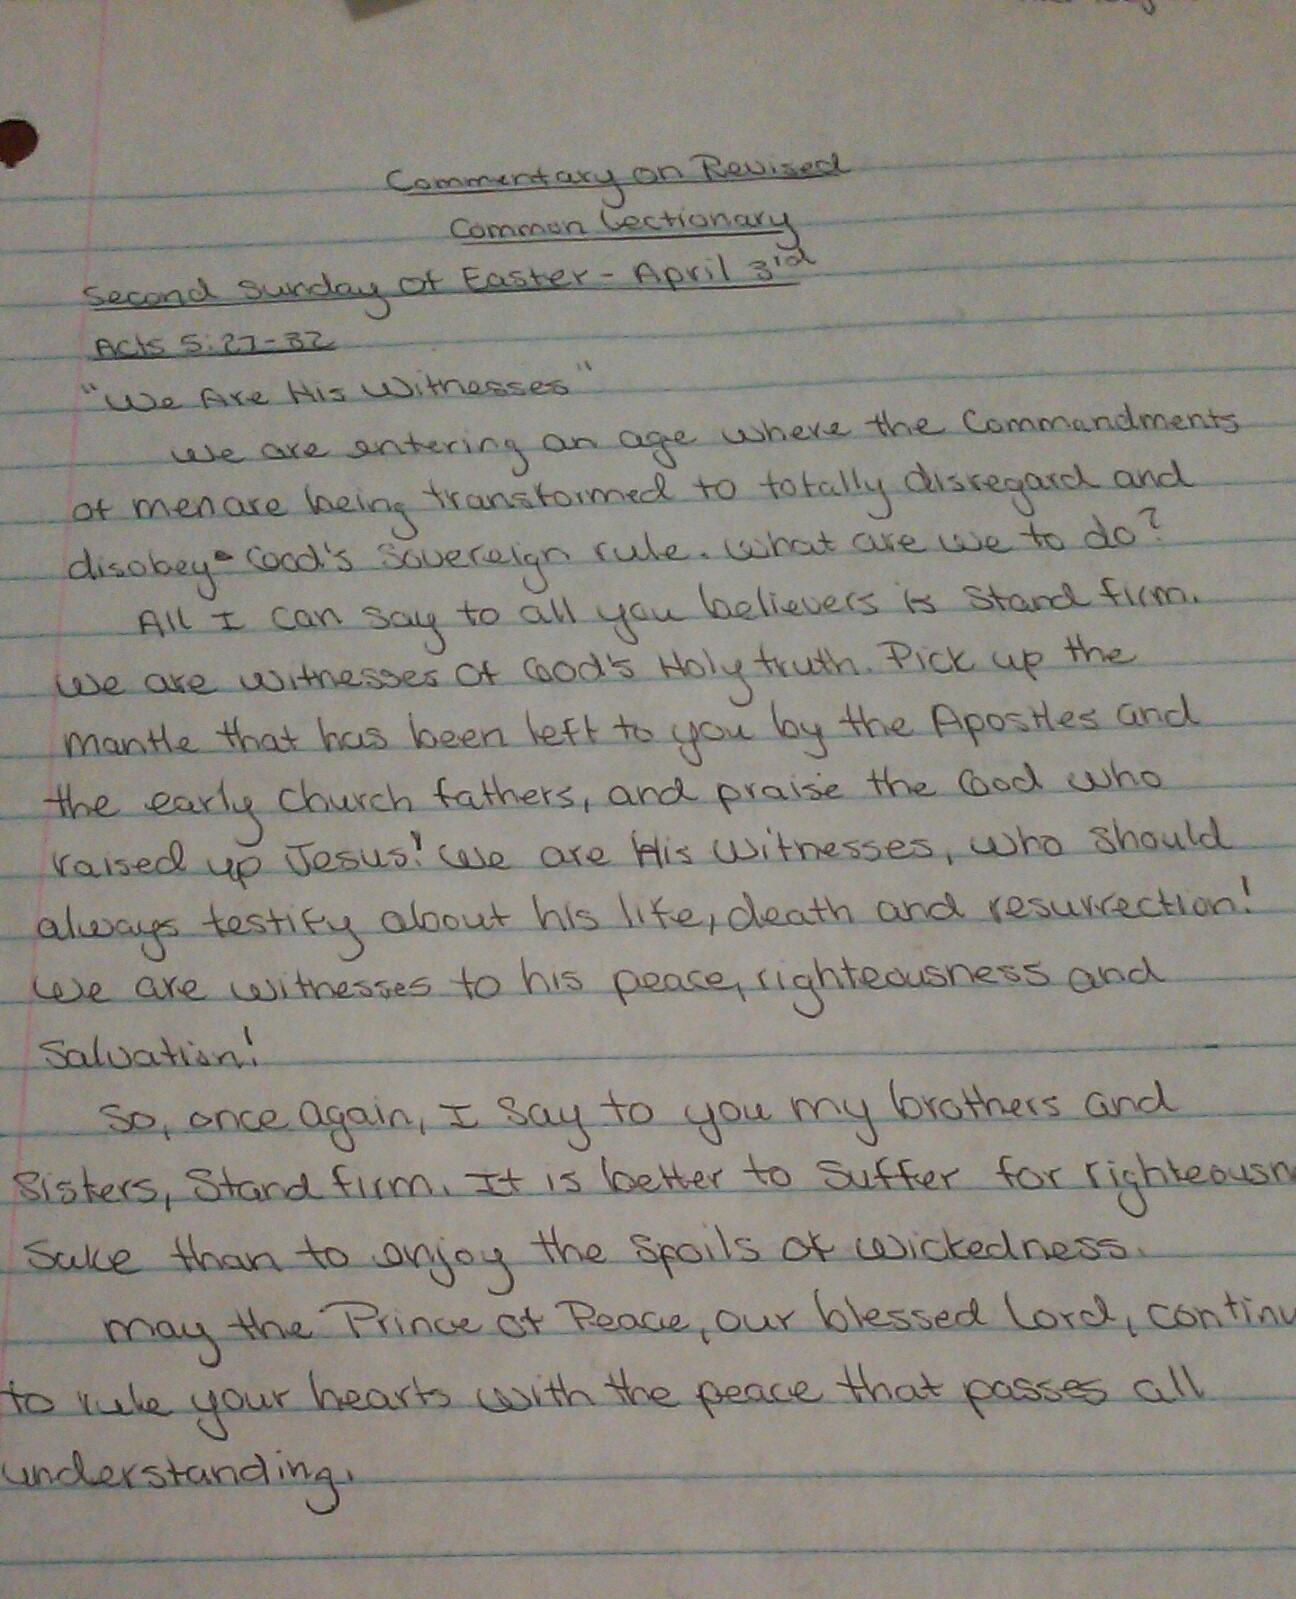 Commentary on Revised
Common Lectionary
Second Sunday of Easter - April 3rd
Acts 5:27-32
"We Are His Witnesses"
We are entering an age where the Commandments
of men are being transformed to totally disregard and
disobey God's Sovereign rule. What are we to do?
All I can say to all you believers is Stand firm.
We are witnesses of God's Holy truth. Pick up the
mantle that has been left to you by the Apostles and
the early Church fathers, and praise the God who
raised up Jesus! We are His Witnesses, who should
always testify about his life, death and resurrection!
We are witnesses to his peace, righteousness and
Salvation!
So, once again, I say to you my brothers and
Sisters, Stand firm. It is better to Suffer for righteousn
Sake than to enjoy the Spoils of wickedness.
May the Prince of Peace, our blessed Lord, continu
to rule your hearts with the peace that passes all
understanding.